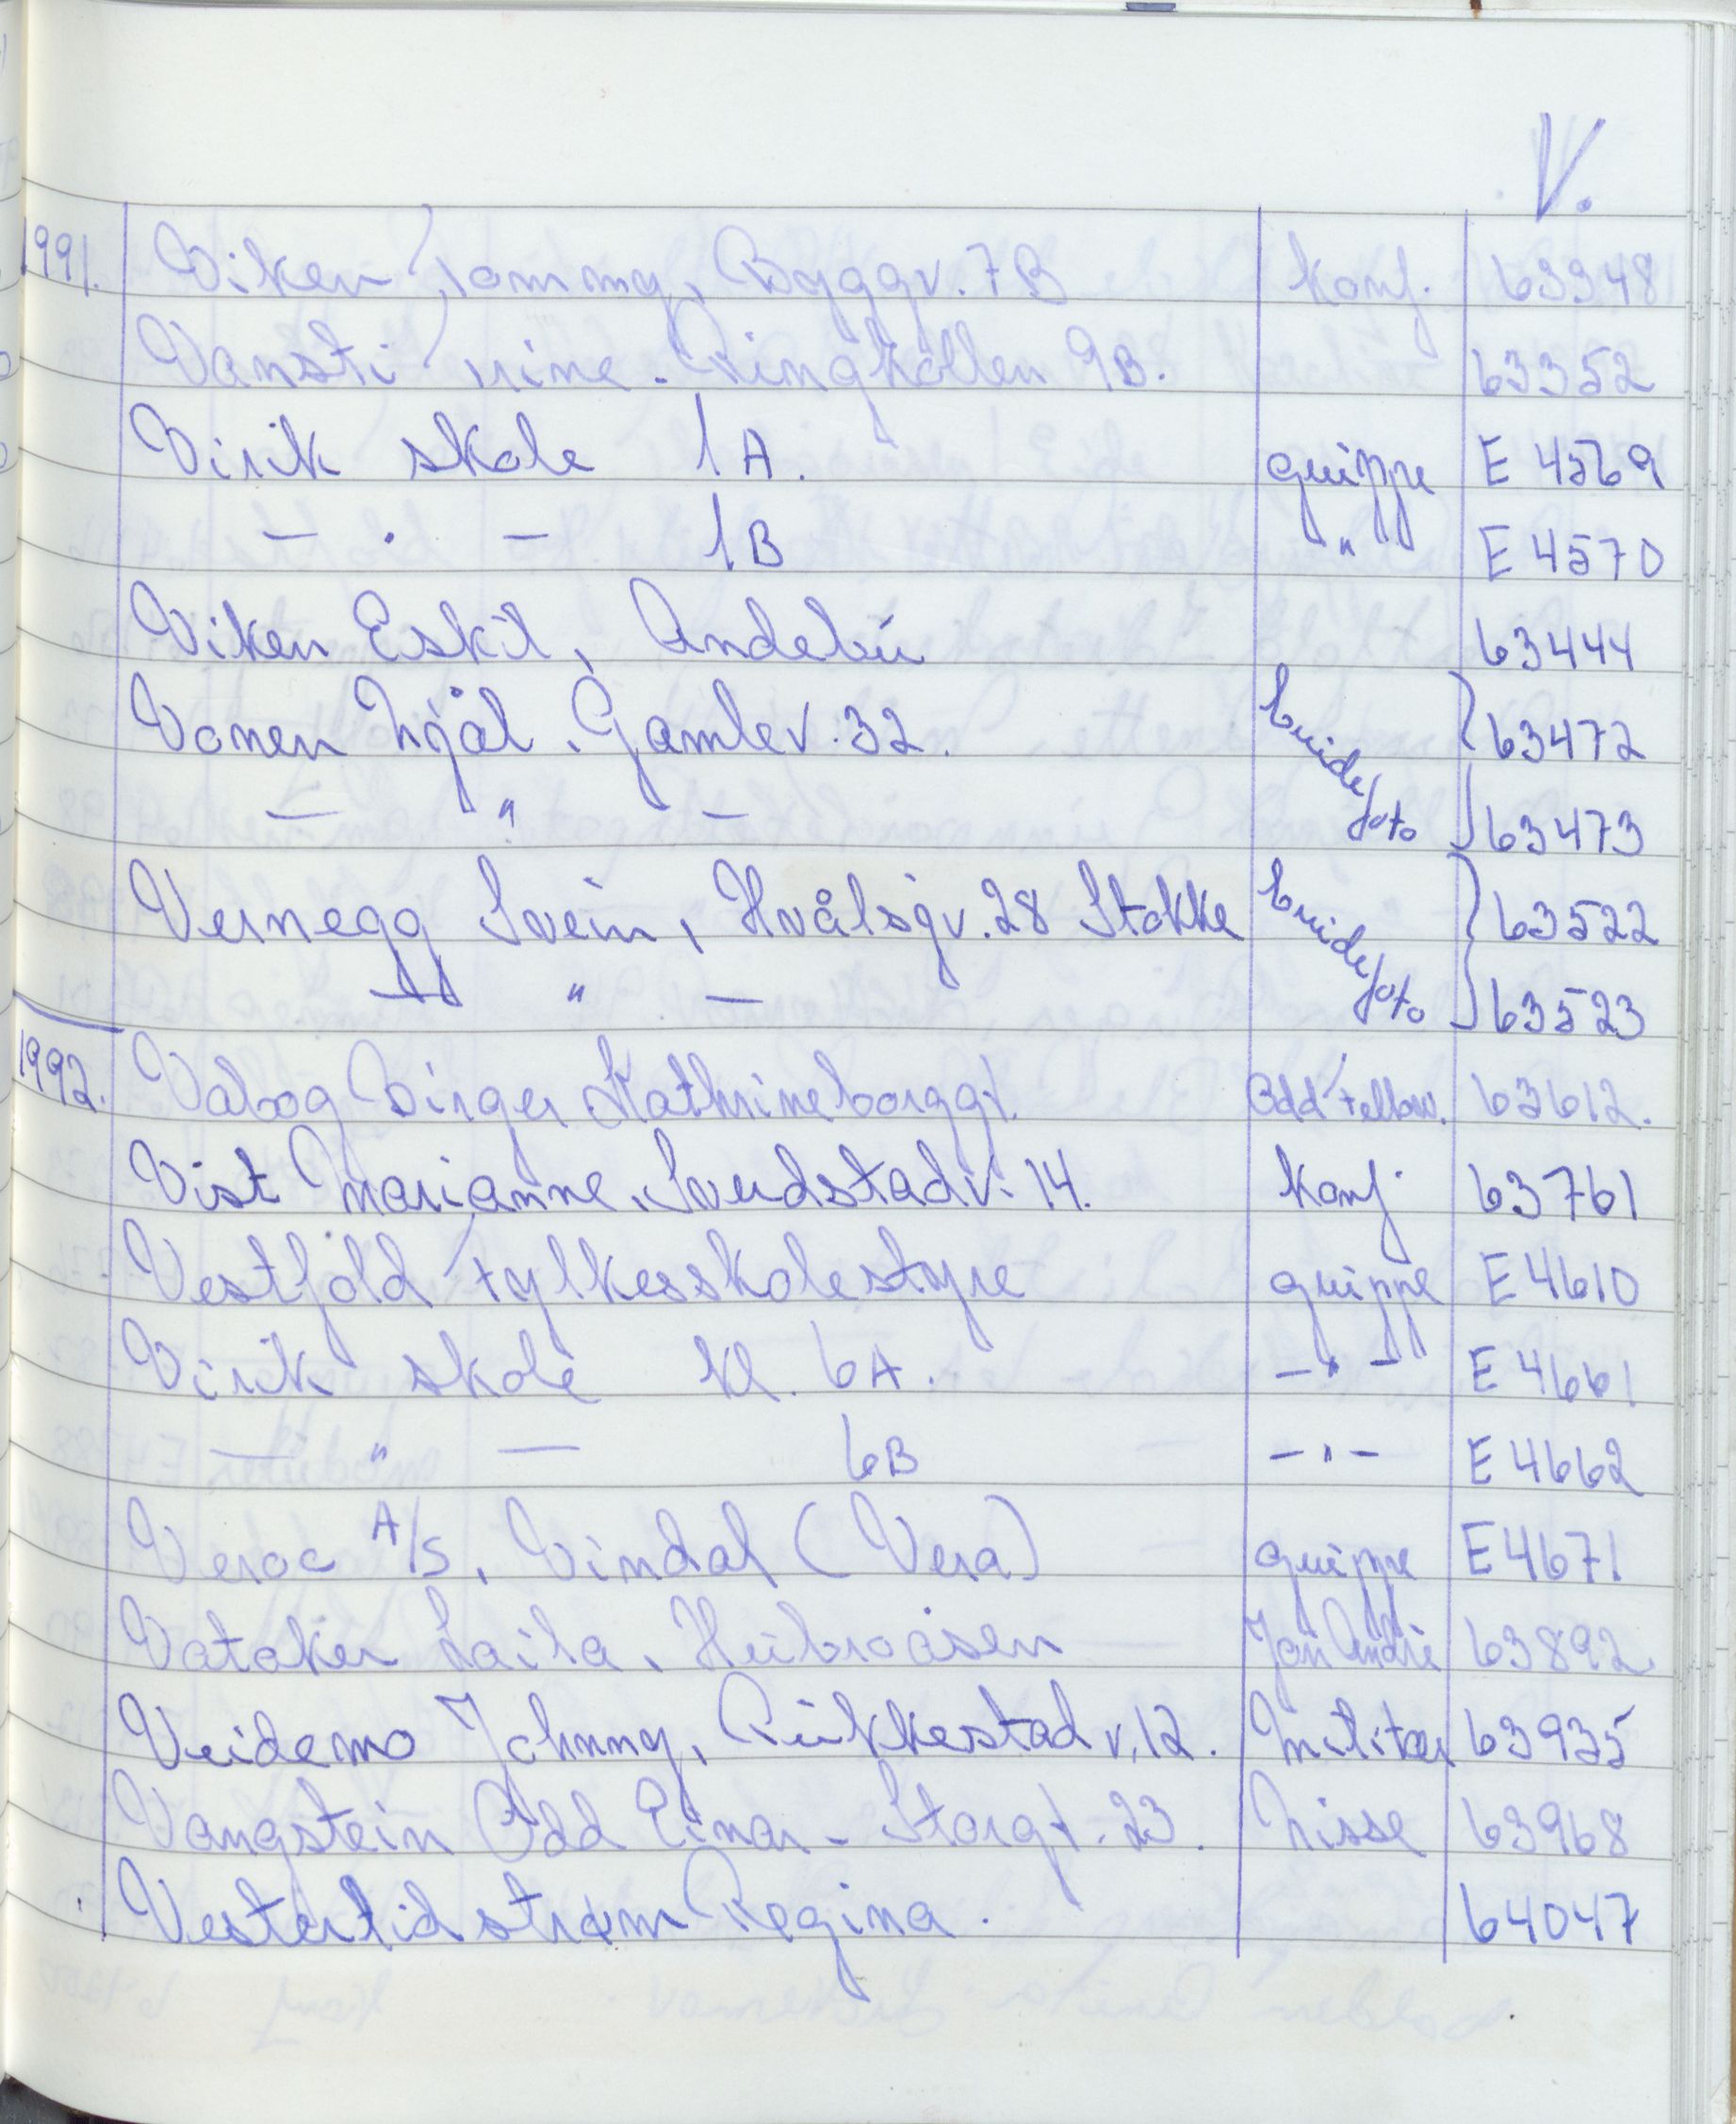 V.
1991. Viken Tommy, Byggv. 7B konf. 63348
Vansti Trine. Ringkollen 9B. 63352
Virik skole 1A. gruppe E 4569
— " — 1B " E 4570
Viken Eskil, Andebu 63444
Vonen Njål, Gamlev. 32. brudefoto 63472
— " — 63473
Vernegg Svein, Hvålsgv. 28 Stokke brudefoto 63522
— " — 63523
1992. Valog Birger Kathrineborggt. Odd Fellow. 63612.
Vist Marianne, Sverdstadv. 14. konf. 63761
Vestfold Fylkesskolestyre gruppe E 4610
Virik skole kl. 6A. — " — E 4661
— " — 6B — " — E 4662
Veroc A/S, Vindal (Vera) gruppe E 4671
Vataker Laila, Heibroåsen Jan André 63892.
Veidemo Johnny, Rukkestadv. 12. Militær 63935
Vangstein Odd Einar - Storgt. 23. Nisse 63968
Vesterlid strøm Regina. 64047